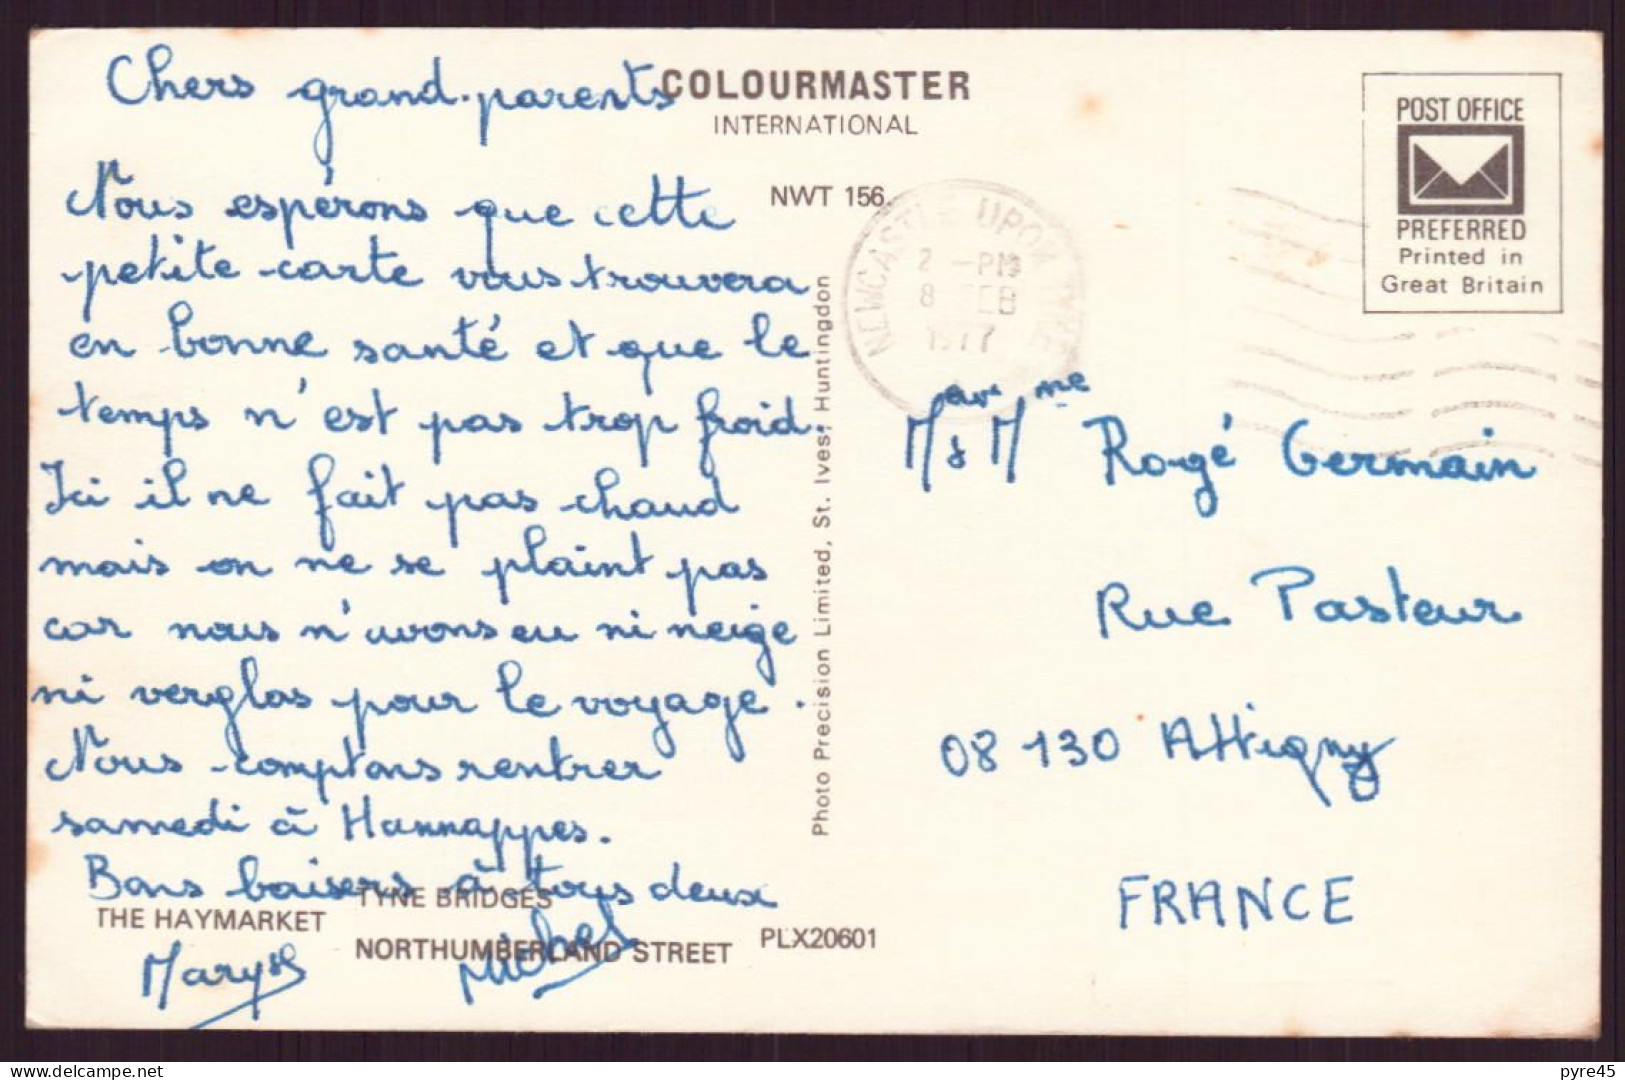 Chers grand-parents
Nous espérons que cette
petite carte vous trouvera
en bonne santé et que le
temps n'est pas trop froid.
Ici il ne fait pas chaud
mais on ne se plaint pas
car nous n'avons eu ni neige
ni verglas pour le voyage.
Nous comptons rentrer
samedi à Hannappes.
Bons baisers à tous deux
Michel
THE HAYMARKET
TYNE BRIDGES
NORTHUMBERLAND STREET
PLX20601
COLOURMASTER
INTERNATIONAL
NWT 156.
Photo Precision Limited, St. Ives, Huntingdon
NEWCASTLE UPON TYNE
2 - PM
8 FEB
1977
POST OFFICE
PREFERRED
Printed in
Great Britain
M & Mme Rogé Germain
Rue Pasteur
08 130 Attigny
FRANCE
pyre45